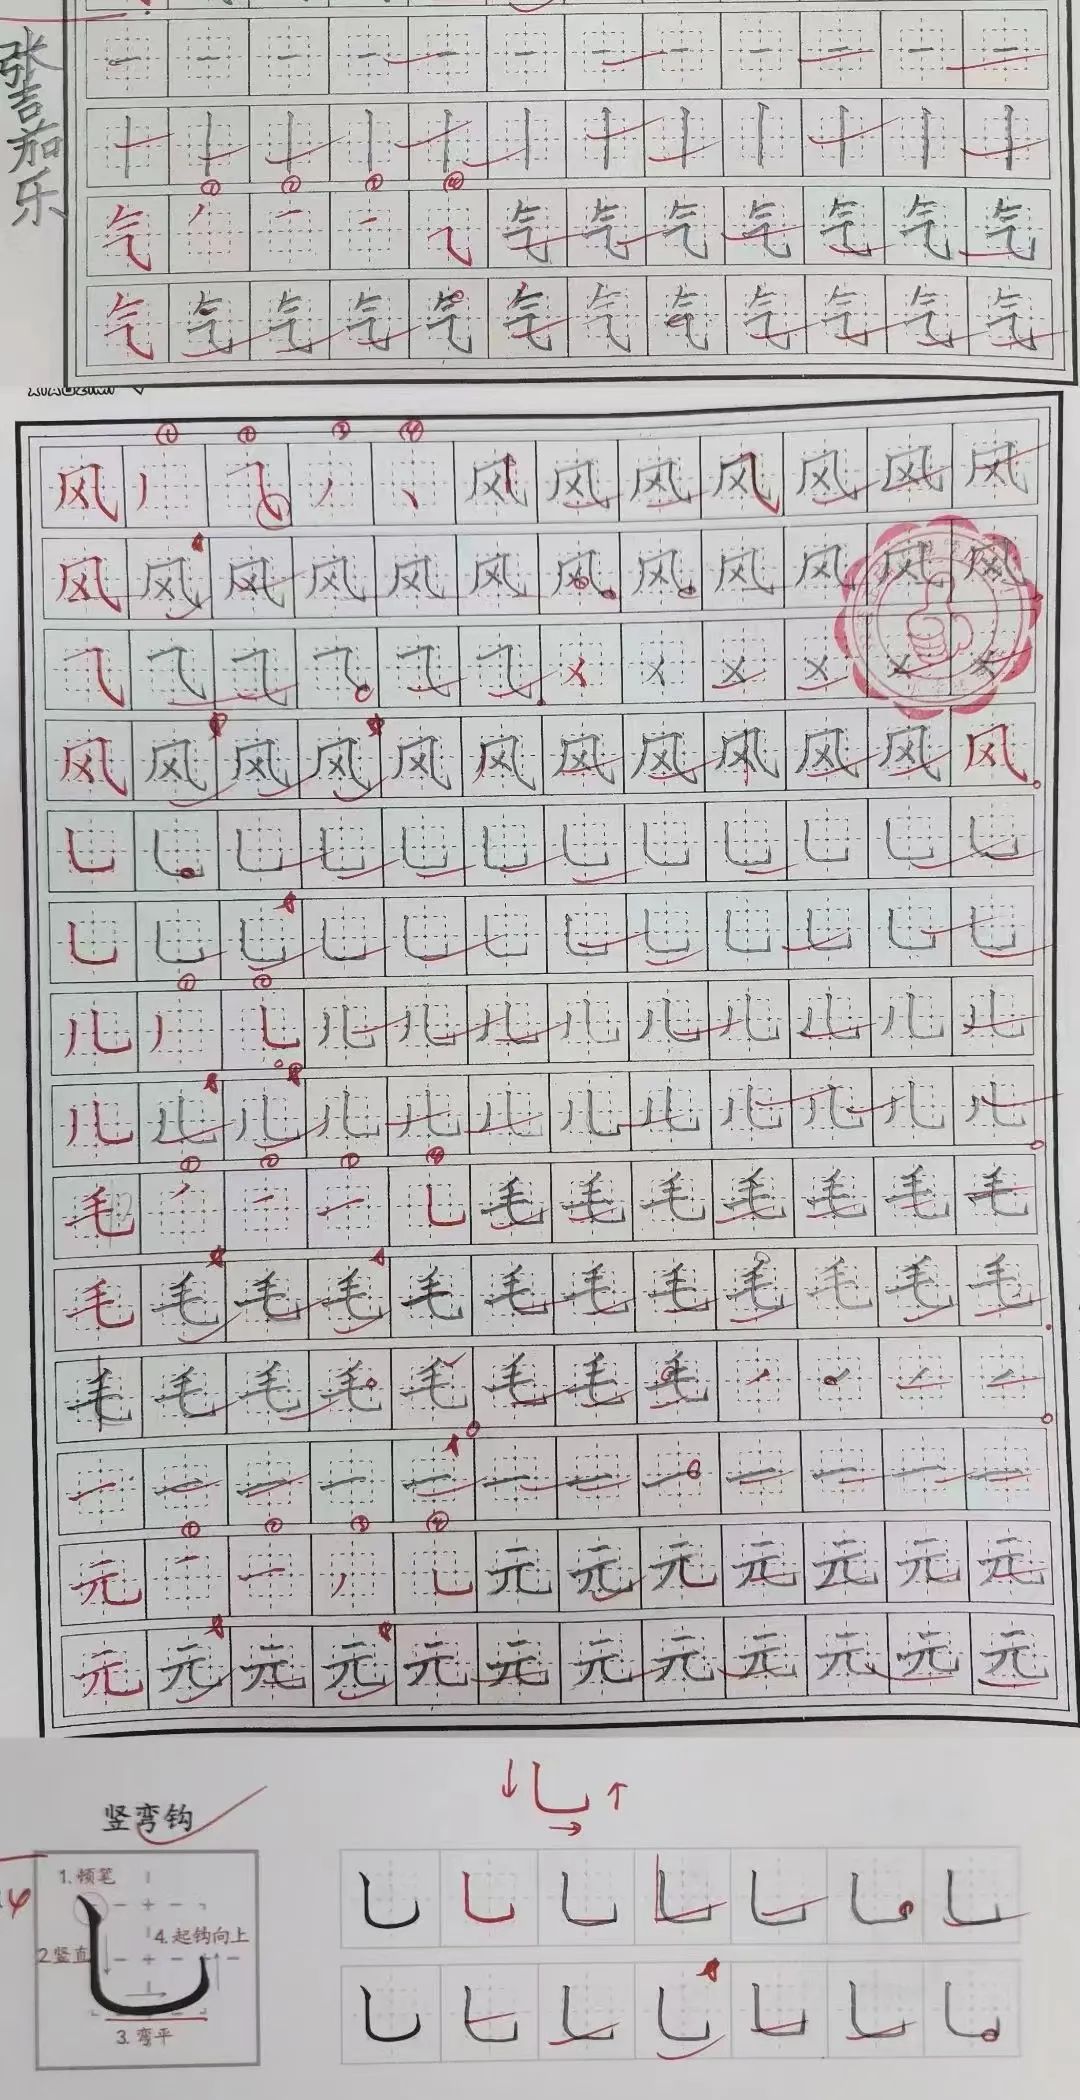 张吉茄乐
一 一 一 一 一 一 一 一 一 一 一 一
丨 丨 丨 丨 丨 丨 丨 丨 丨 丨 丨 丨
① ② ③ ④
气 丿 一 一 ⺄ 气 气 气 气 气 气 气
气 气 气 气 气 气 气 气 气 气 气 气
① ② ③ ④
风 丿 ⺄ 丿 丶 风 风 风 风 风 风 风
风 风 风 风 风 风 风 风 风 风 风 风
⺄ ⺄ ⺄ ⺄ ⺄ ⺄ 㐅 㐅 㐅 㐅 㐅 㐅
风 风 风 风 风 风 风 风 风 风 风 风
乚 乚 乚 乚 乚 乚 乚 乚 乚 乚 乚 乚
乚 乚 乚 乚 乚 乚 乚 乚 乚 乚 乚 乚
① ②
儿 丿 乚 儿 儿 儿 儿 儿 儿 儿 儿 儿
儿 儿 儿 儿 儿 儿 儿 儿 儿 儿 儿 儿
① ② ③ ④
毛 丿 一 一 乚 毛 毛 毛 毛 毛 毛 毛
毛 毛 毛 毛 毛 毛 毛 毛 毛 毛 毛 毛
毛 毛 毛 毛 毛 毛 毛 毛 丿 丿 丿 丿
一 一 一 一 一 一 一 一 一 一 一 一
① ② ③ ④
元 一 一 丿 乚 元 元 元 元 元 元 元
元 元 元 元 元 元 元 元 元 元 元 元
竖弯钩
1.顿笔
2.竖直
4.起钩向上
3.弯平
乚 乚 乚 乚 乚 乚 乚
乚 乚 乚 乚 乚 乚 乚